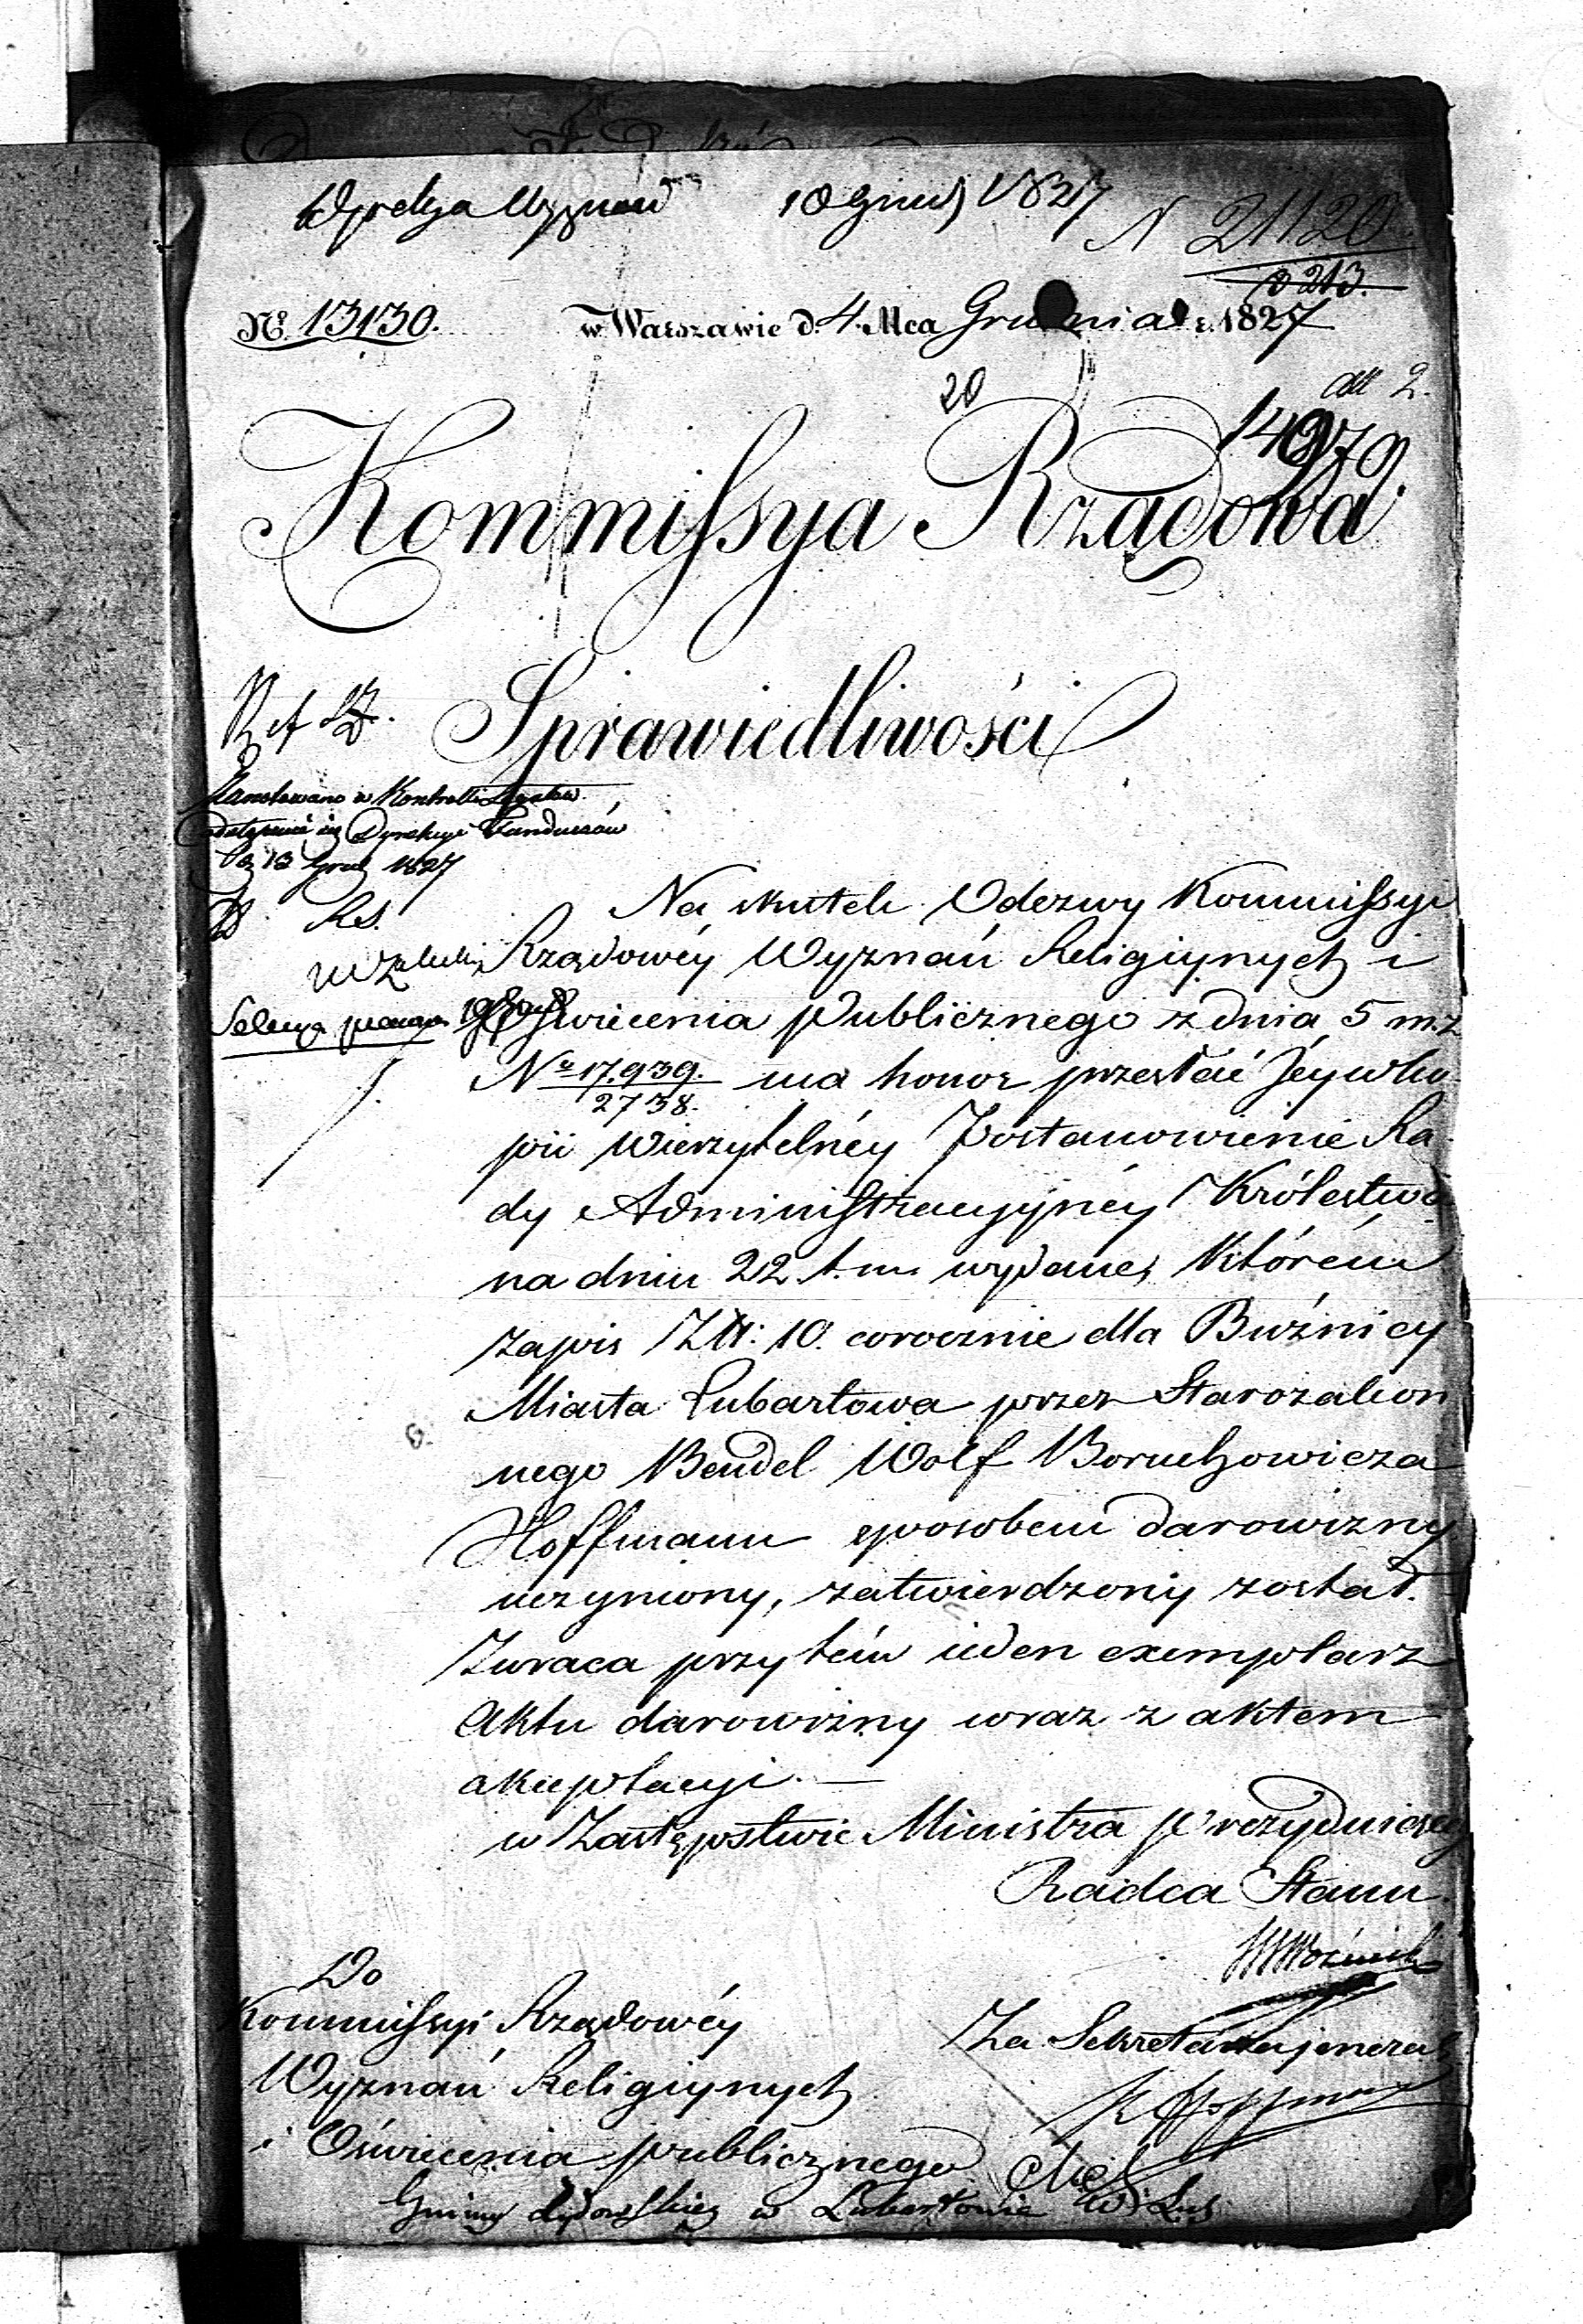 Dyrekcya Wyznań 10 Grud 1827
N 21120
213.
No. 13130. w Warszawie d. 4. Mca Grudnia r. 1827
20
att 2.
14979
Kommissya Rządowa
Sprawiedliwości
Zanotowano w Kontrolli Legatów
Dyrekcyi Funduszów
13 Grud 1827
Na skutek Odezwy Kommissyi
Rządowéy Wyznań Religiynych i
Oświecenia Publicznego z dnia 5 m. z
No 17.939.
2738.
ma honor przesłać Jéy w ko
pii wierzytelnéy Postanowienie Ra
dy Administracyjnéy Królestwa
na dniu 22 t. m. wydane, którém
zapis Złł: 10. corocznie dla Bużnicy
Miasta Lubartowa przez Starozakon
nego Bendel Wolf Boruchowicza
Hoffmann sposobem darowizny
uczyniony, zatwierdzony został.
Zwraca przytém ieden exemplarz
Aktu darowizny wraz z aktem
akceptacyi. —
w Zastępstwie Ministra Prezyduiącego
Radca Stanu
Woźnicki
Do
Kommissyi Rządowéy
Wyznań Religiynych
i Oświecenia publicznego
Za Sekretarza jeneral
Gminy żydowskiey w Lubartowie W. Lub